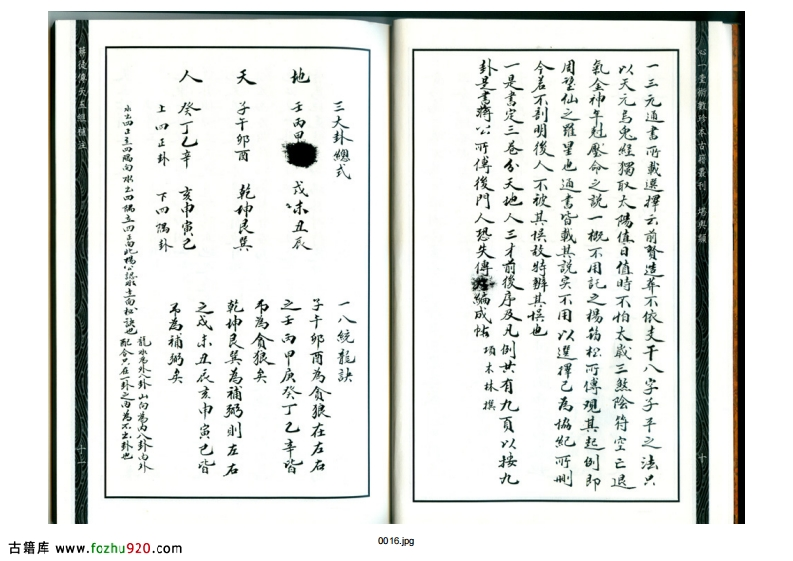 心一堂術數珍本古籍叢刊 堪輿類
十
一三元通書所載選擇云前賢造葬不依支干八字子平之法只
以天元烏兔經獨取太陽值日值時不怕太歲三煞陰符空亡退
氣金神年尅壓命之說一概不用記之楊筠松所傳觀其起例即
用璧仙之羅星也通書皆載其說實不用以選擇已為協紀所刪
今若不剖明後人不被其悞故特辦其悞也
一是書定三卷分天地人三才前後序及凡例共有九頁以按九
卦是書蔣公所傳後門人恐失傳編成帖
項木林撰
三大卦總式
地 壬丙甲 戌未丑辰
天 子午卯酉 乾坤艮巽
人 癸丁乙辛 亥申寅巳
上四正卦 下四隅卦
水出四正立四隅向水出四隅立四正向此楊公認水立向松訣也
一八統龍訣
子午卯酉為貪狼在左右
之壬丙甲庚癸丁乙辛皆
吊為貪狼矣
乾坤艮巽為補弼則左右
之戌未丑辰亥申寅巳皆
吊為補弼矣
龍水為外八卦山向為內八卦內外
配合只在一卦之內為不出卦也
蔣徒傳天玉經補注
十一
古籍库 www.fozhu920.com
0016.jpg